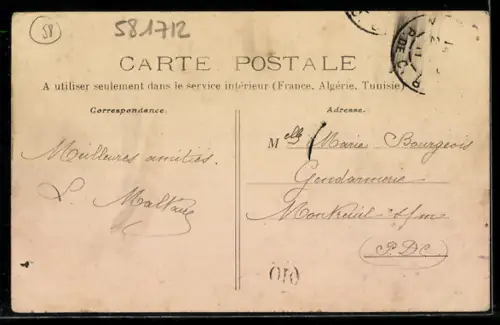 58
581712
CARTE POSTALE
A utiliser seulement dans le service intérieur (France, Algérie, Tunisie)
Correspondance.
Adresse.
Meilleures amitiés.
L.
Melle Marie Bourgeois
Gendarmerie
Montreuil s/m
(P.D.C)
OIO
P. DE C.